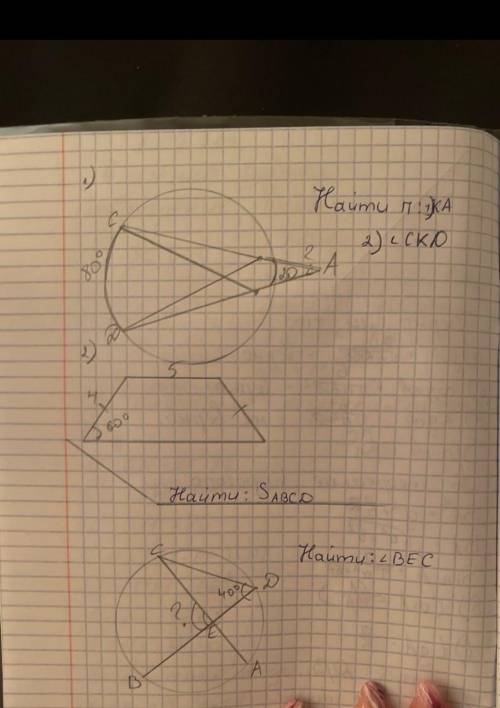 1)
Найти п: 1) КА
2) ∠CKD
C
80°
20
?
A
D
2)
5
4
60°
Найти: SABCD
Найти: ∠BEC
C
40°
D
?
E
B
A